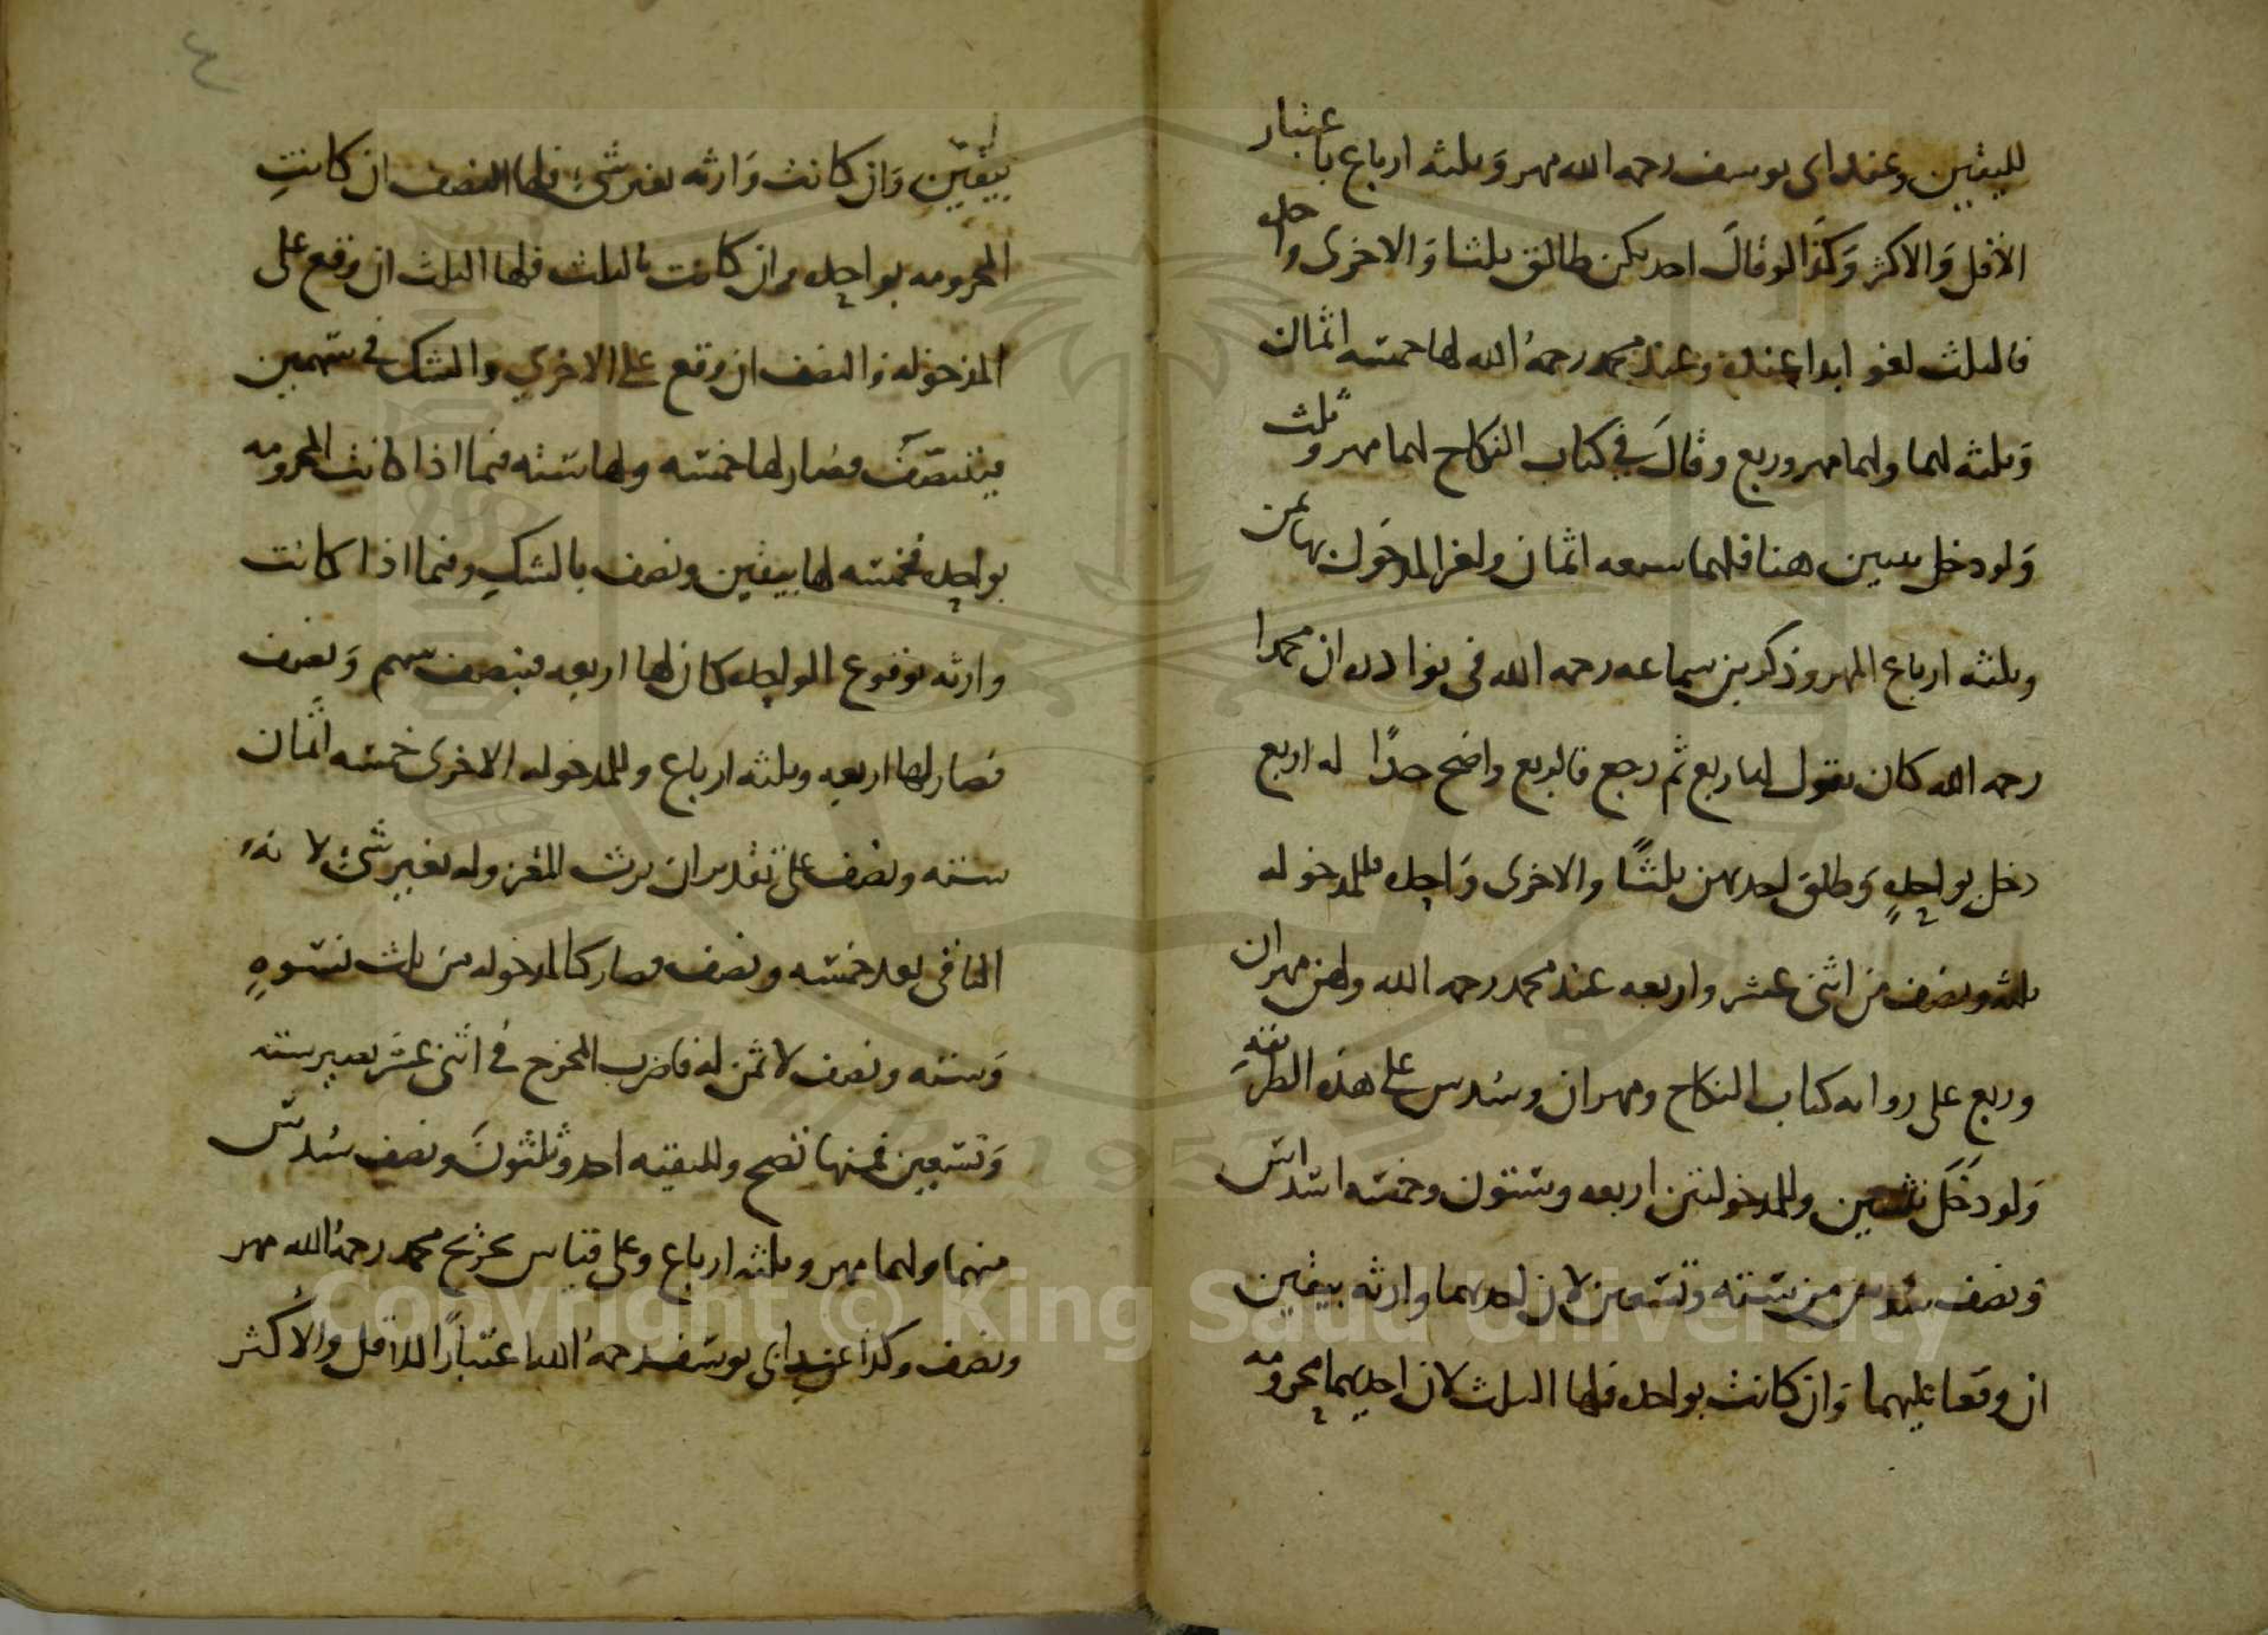 لليقين وعند ابى يوسف رحمه الله مهر وثلثه ارباع باعتبار
الاقل والاكثر وكذا لو قال احديكن طالق ثلثا والاخرى واحده
فالثلث لغو ابدا عنده وعند محمد رحمه الله لها خمسه اثمان
وثلثه لهما ولهما مهر وربع وقال في كتاب النكاح لهما مهر وثلث
ولو دخل بثنتين هنا فلهما سبعه اثمان ولغير المدخول بها ثمن
وثلثه ارباع المهر وذكر بن سماعه رحمه الله في نوادره ان محمدا
رحمه الله كان يقول لها ربع ثم رجع فالربع واضح جدا له اربع
دخل بواحدة وطلق احديهن ثلثا والاخرى واحده فللمدخوله
ثلثه ونصف من اثنى عشر واربعه عند محمد رحمه الله ولهن مهران
وربع على روايه كتاب النكاح ومهران وسدس على هذه الطريقه
ولو دخل بثنتين وللمدخولتين اربعه وستون وخمسه اسداس
ونصف سدس من سته وتسعين لان احديهما وارثه بيقين
ان وقعا عليهما وان كانت بواحده فلها الثلث لان احديهما محرومه
بيقين وان كانت وارثه بغير شئ فلها النصف ان كانت
المحرومه بواحده وان كانت بالثلث فلها الثلث ان وقع على
المدخوله والنصف ان وقع على الاخرى والشك في سهمين
فيتنصف فصار لها خمسه ولها سته فيما اذا كانت المحرومه
بواحده فخمسه لها بيقين ونصف بالشك وفيما اذا كانت
وارثه بوقوع الواحده كان لها اربعه فينصف سهم ونصف
فصار لها اربعه وثلثه ارباع وللمدخوله الاخرى خمسه اثمان
سته ونصف على تقدير ان يرث المقروله بغير شئ لانه
الباقى بعد خمسه ونصف فصار كالمدخوله من ثلث نسوة
وسته ونصف لا ثمن له فاضرب المخرج في اثنى عشر يصير سته
وتسعين فمنها تصح وللبقيه احد وثلثون ونصف سدس
منهما ولهما مهر وثلثه ارباع وعلى قياس تخريج محمد رحمه الله مهر
ونصف وكذا عند ابى يوسف رحمه الله اعتبارا للاقل والاكثر
٤
Copyright © King Saud University